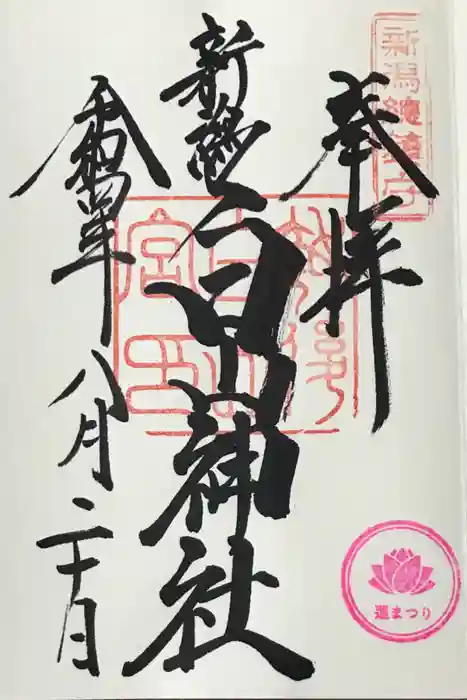 新潟總鎮守
奉拝
新潟
白山神社
令和四年
八月二十日
蓮まつり